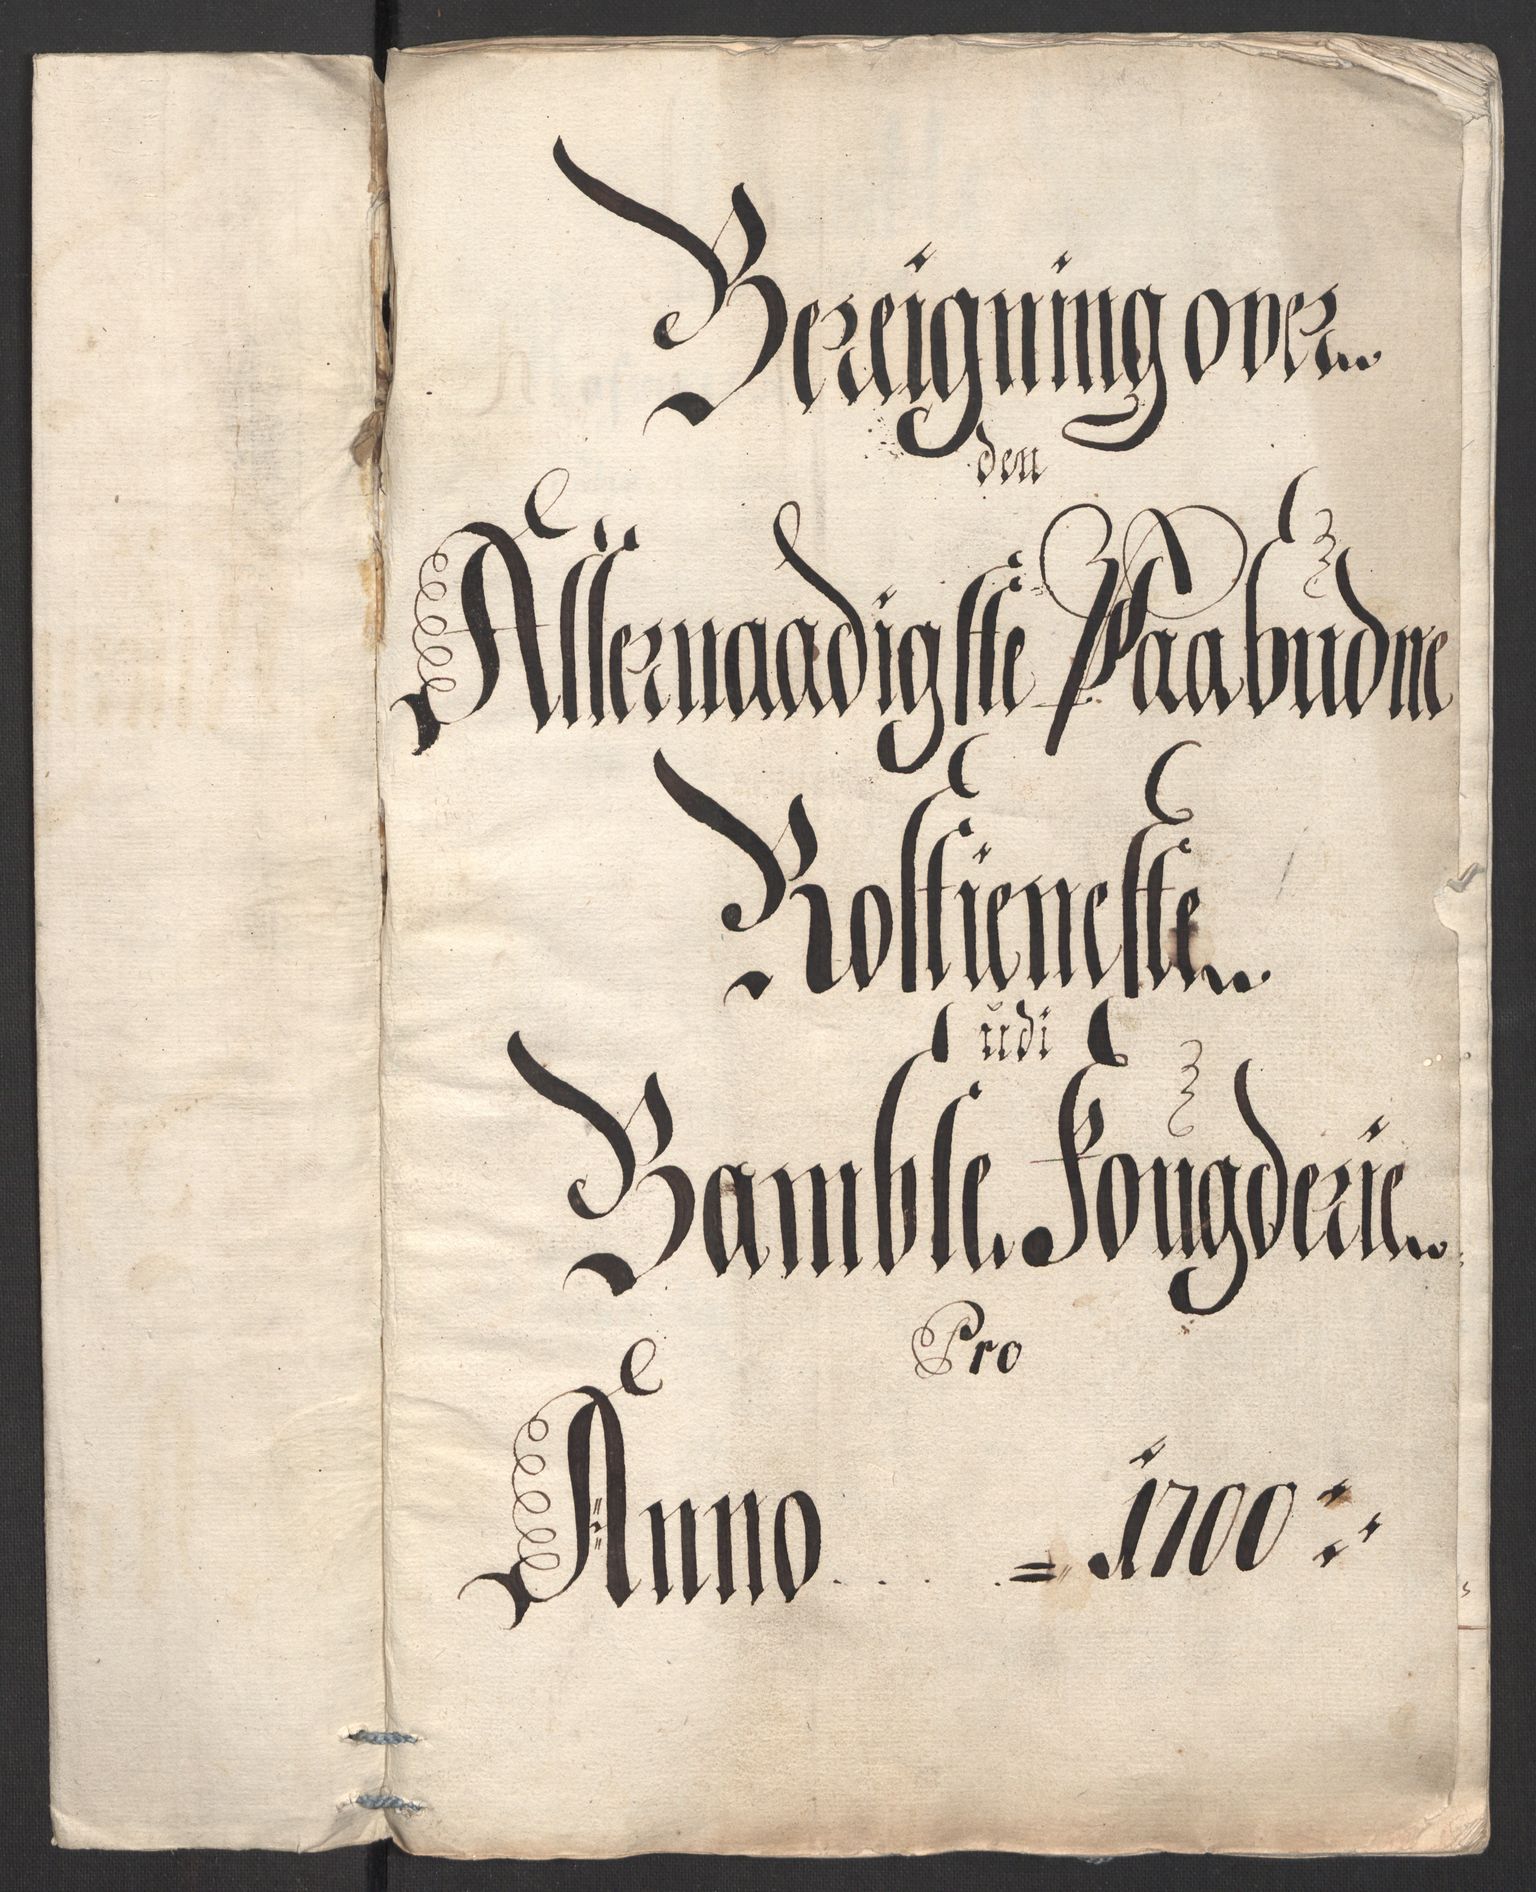 Bereigning over
den
Allernaadigste Paabudne
Rostieneste
udi
Bamble Fougderie
Pro
Anno .... = 1700